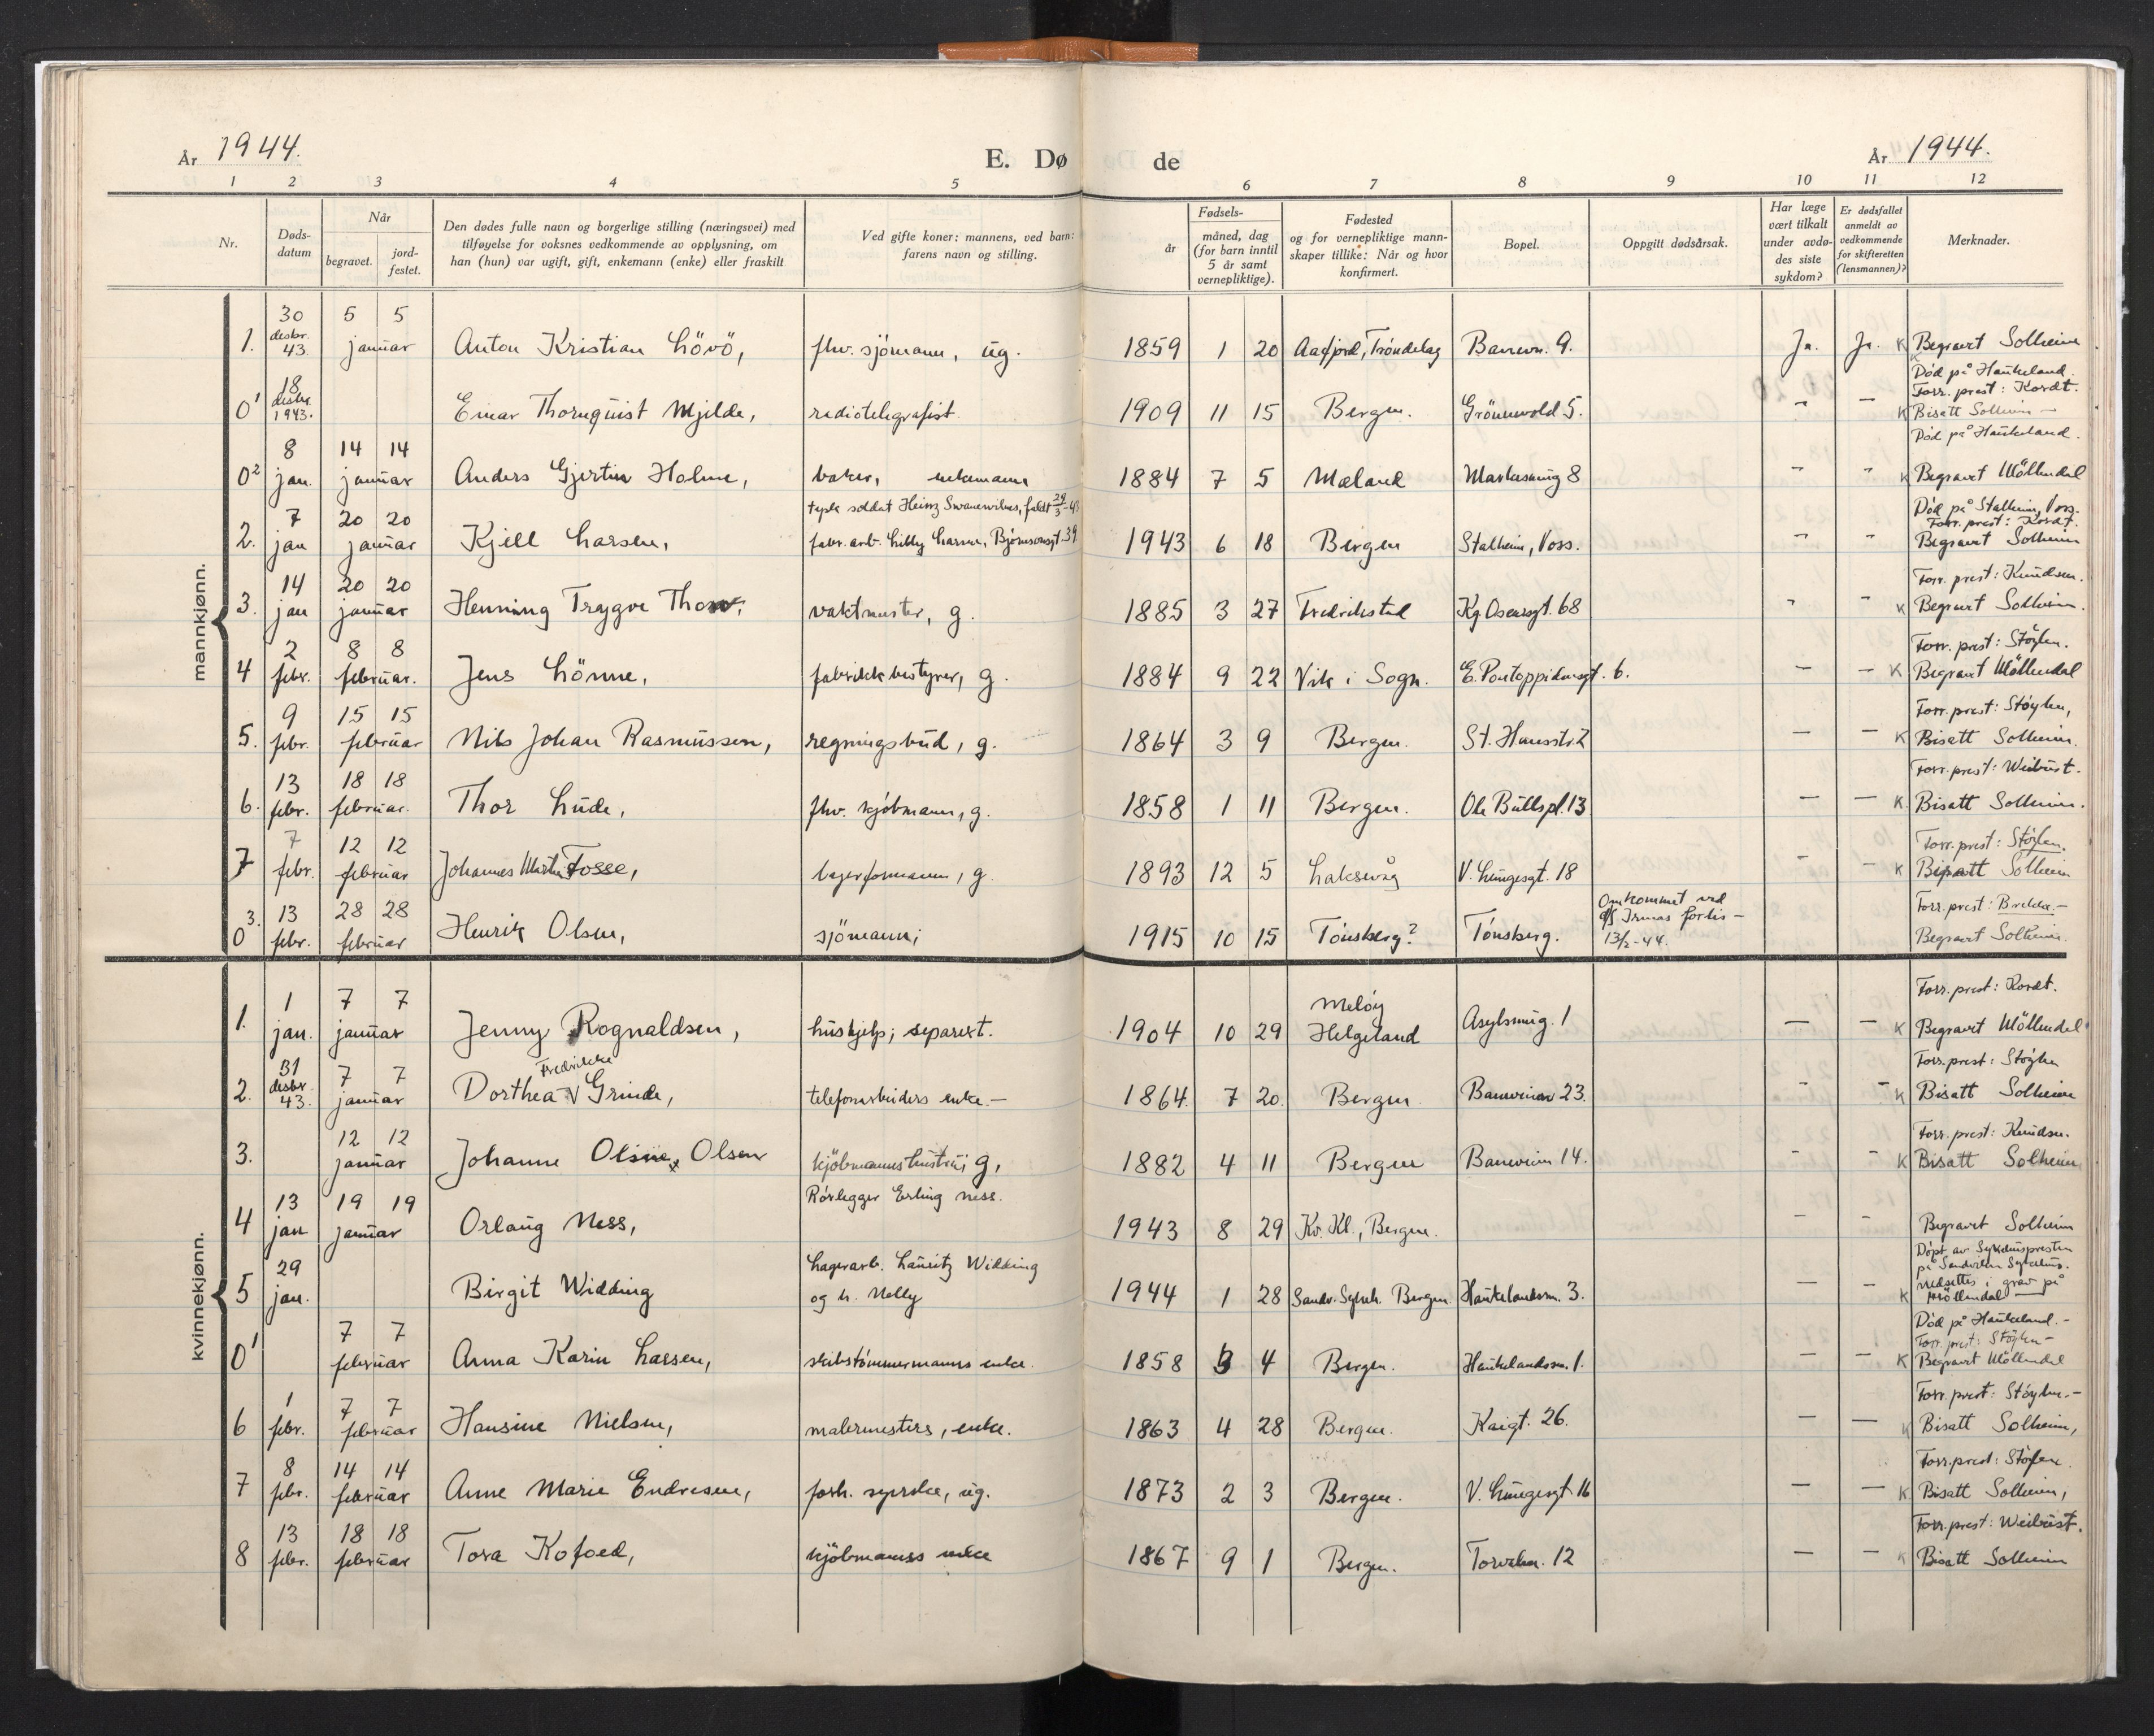 År 1944.
E. Dø de
År 1944.
1 2 3 4 5 6 7 8 9 10 11 12
Nr.
Døds-
datum
Når
begravet.
jord-
festet.
Den dødes fulle navn og borgerlige stilling (næringsvei) med
tilføyelse for voksnes vedkommende av opplysning, om
han (hun) var ugift, gift, enkemann (enke) eller fraskilt
Ved gifte koner: mannens, ved barn:
farens navn og stilling.
år
Fødsels-
måned, dag
(for barn inntil
5 år samt
vernepliktige).
Fødested
og for vernepliktige mann-
skaper tillike: Når og hvor
konfirmert.
Bopel.
Oppgitt dødsårsak.
Har læge
vært tilkalt
under avdø-
des siste
sykdom?
Er dødsfallet
anmeldt av
vedkommende
for skifteretten
(lensmannen)?
Merknader.
mannkjønn.
30 5 5
1. desbr. 43. januar Anton Kristian Lövö, fhv. sjömann, ug. 1859 1 20 Aafjord, Tröndelag Banevn. 9. Ja. Ja. K Begravet Solheim
18 Död på Haukeland.
Forr. prest: Kordt.
0¹ desbr. 1943. Einar Thornquist Mjelde, radiotelegrafist. 1909 11 15 Bergen. Grönnevold 5. " — K Bisatt Solheim —
8 14 14 Död på Haukeland.
0² jan. januar Anders Gjertin Holme, baker, enkemann 1884 7 5 Mæland 8 " " K Begravet Möllendal
7 20 20 tysk soldat Heinz faldt 24/3-43 Död på Stalheim, Voss.
Forr. prest: Kordt.
2. jan januar Kjell Larsen, fabr. arb. Lilly Larsen, Björnsonsgt. 39 1943 6 18 Bergen Stalheim, Voss. " " Begravet Solheim
14 20 20 Forr. prest: Knudsen.
3. jan januar Henning Trygve Thow, vaktmester, g. 1885 3 27 Fredrikstad Kg. Oscarsgt. 68 " — K Begravet Solheim.
2 8 8 Forr. prest: Stöylen.
4 febr. februar. Jens Lönne, fabrikkbestyrer, g. 1884 9 22 Vik i Sogn. E. Pontoppidansgt. 6. — — K Begravet Möllendal
9 15 15 Forr. prest: Stöylen,
5. febr. februar Nils Johan Rasmussen, regningsbud, g. 1864 3 9 Bergen. St. Hansstr. 2 — — K Bisatt Solheim.
13 18 18 Forr. prest: Weibust.
6. febr. februar. Thor Lude, fhv. kjöbmann, g. 1858 1 11 Bergen. Ole Bullspl. 13 — — K. Bisatt Solheim.
7 12 12 Forr. prest: Stöylen.
7 febr. februar Johannes Martin Fosse, lagerformann, g. 1893 12 5 Laksevåg V. Lungesgt. 18 - — K Bisatt Solheim
13 28 28 Omkommet ved Forr. prest: Bredda.—
0³ febr. februar Henrik Olsen, sjömann; 1915 10 15 Tönsberg? Tönsberg. d/s Irmas forlis — 13/2-44. Begravet Solheim.
kvinnekjønn.
1 7 7 Melöy Forr. prest: Kordt.
1. jan. januar Jenny Rognaldsen, huskjelp; separert. 1904 10 29 Helgeland Asylsmug. 1 — — K Begravet Möllendal
31 7 7 Fredrikke Forr. prest: Stöylen
2. desbr. 43. januar Dorthea V Grinde, telefonarbeiders enke.— 1864. 7 20. Bergen Baneveien 23. - — K Bisatt Solheim
12 12 Forr. prest: Knudsen.
3. januar Johanne Olsen kjöbmannshustru; g, 1882 4 11 Bergen Baneveien 14. - - K Bisatt Solheim
13 19 19 Rörlegger Erling Ness.
4 jan januar Orlaug Ness, 1943 8 29 Kv. Kl., Bergen. — - Begravet Solheim
29 Lagerarb. Lauritz Widding Döpt av Sykehuspresten
på Sandviken Sykehus.
5 jan. Birgit Widding og h. Nelly 1944 1 28 Sandv. Sykeh. Bergen. Haukelandsvn. 3. — — K nedsettes i grav på Möllendal
7 7 Död på Haukeland.—
Forr. prest: Stöylen—
0¹ februar Anna Karin Larsen, skibstömmermanns enke. 1858 3 4 Bergen. Haukelandsvn. 1. — — K Begravet Möllendal
1 7 7 Forr. prest: Stöylen.—
6 febr. februar Hansine Nielsen, malermesters, enke. 1863 4 28 Bergen. Kaigt. 26. — — K Bisatt Solheim,
8 14 14 Forr. prest: Stöylen.
7 febr. februar Anne Marie Endresen, forh. syerske, ug. 1873 2 3 Bergen. V. Lungesgt. 16 — — K Bisatt Solheim,
13 18 18 Forr. prest: Weibust.
8 febr. februar Tora Kofoed, kjöbmanns enke 1867 9 1 Bergen. Torvalm. 12 — — K Bisatt Solheim